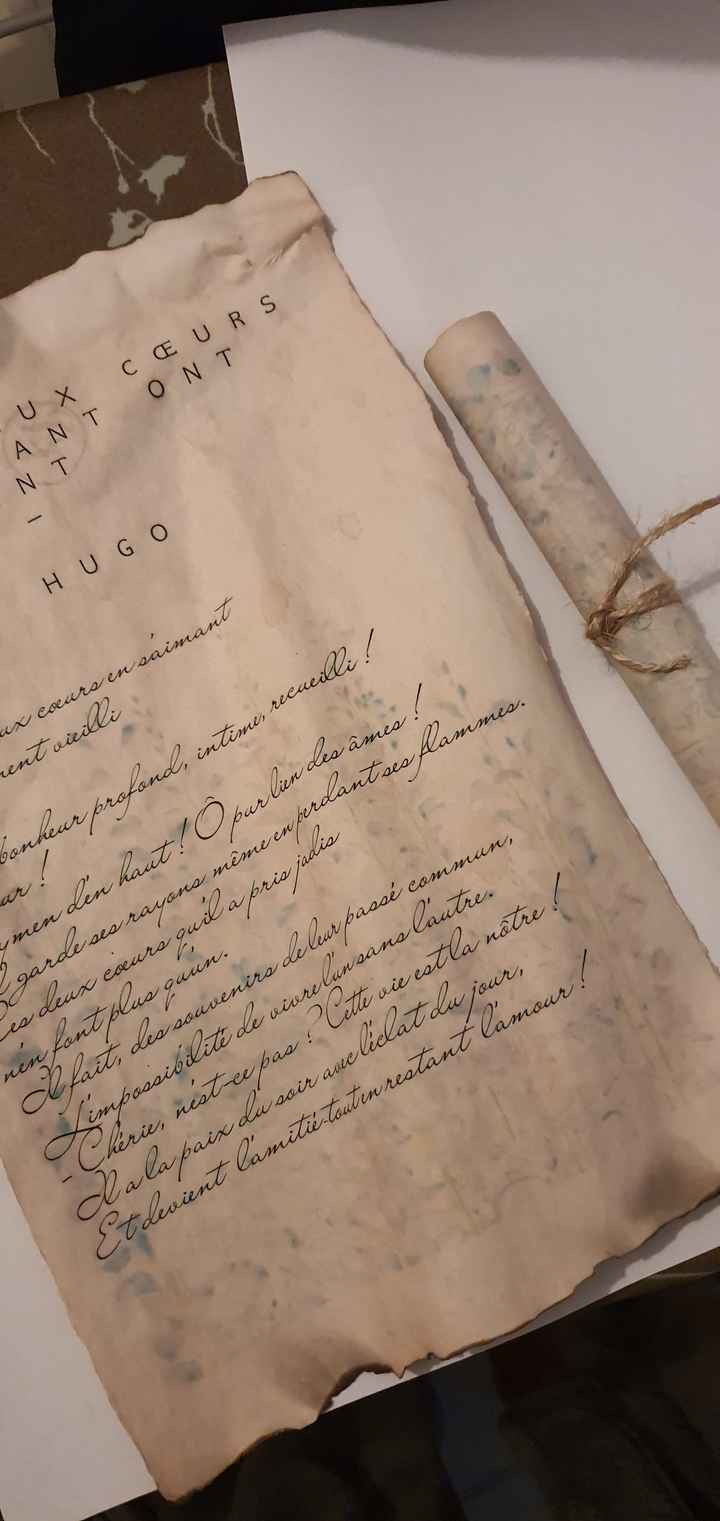 UX CŒURS
ANT ONT
NT
–
HUGO
ux cœurs en s'aimant
ent vieilli
bonheur profond, intime, recueilli !
ur !
ymen d'en haut ! Ô pur lien des âmes !
garde ses rayons même en perdant ses flammes.
Ces deux cœurs qu'il a pris jadis
n'en font plus qu'un.
Il fait, des souvenirs de leur passé commun,
L'impossibilité de vivre l'un sans l'autre.
- Chérie, n'est-ce pas ? Cette vie est la nôtre !
Il a la paix du soir avec l'éclat du jour,
Et devient l'amitié tout en restant l'amour !